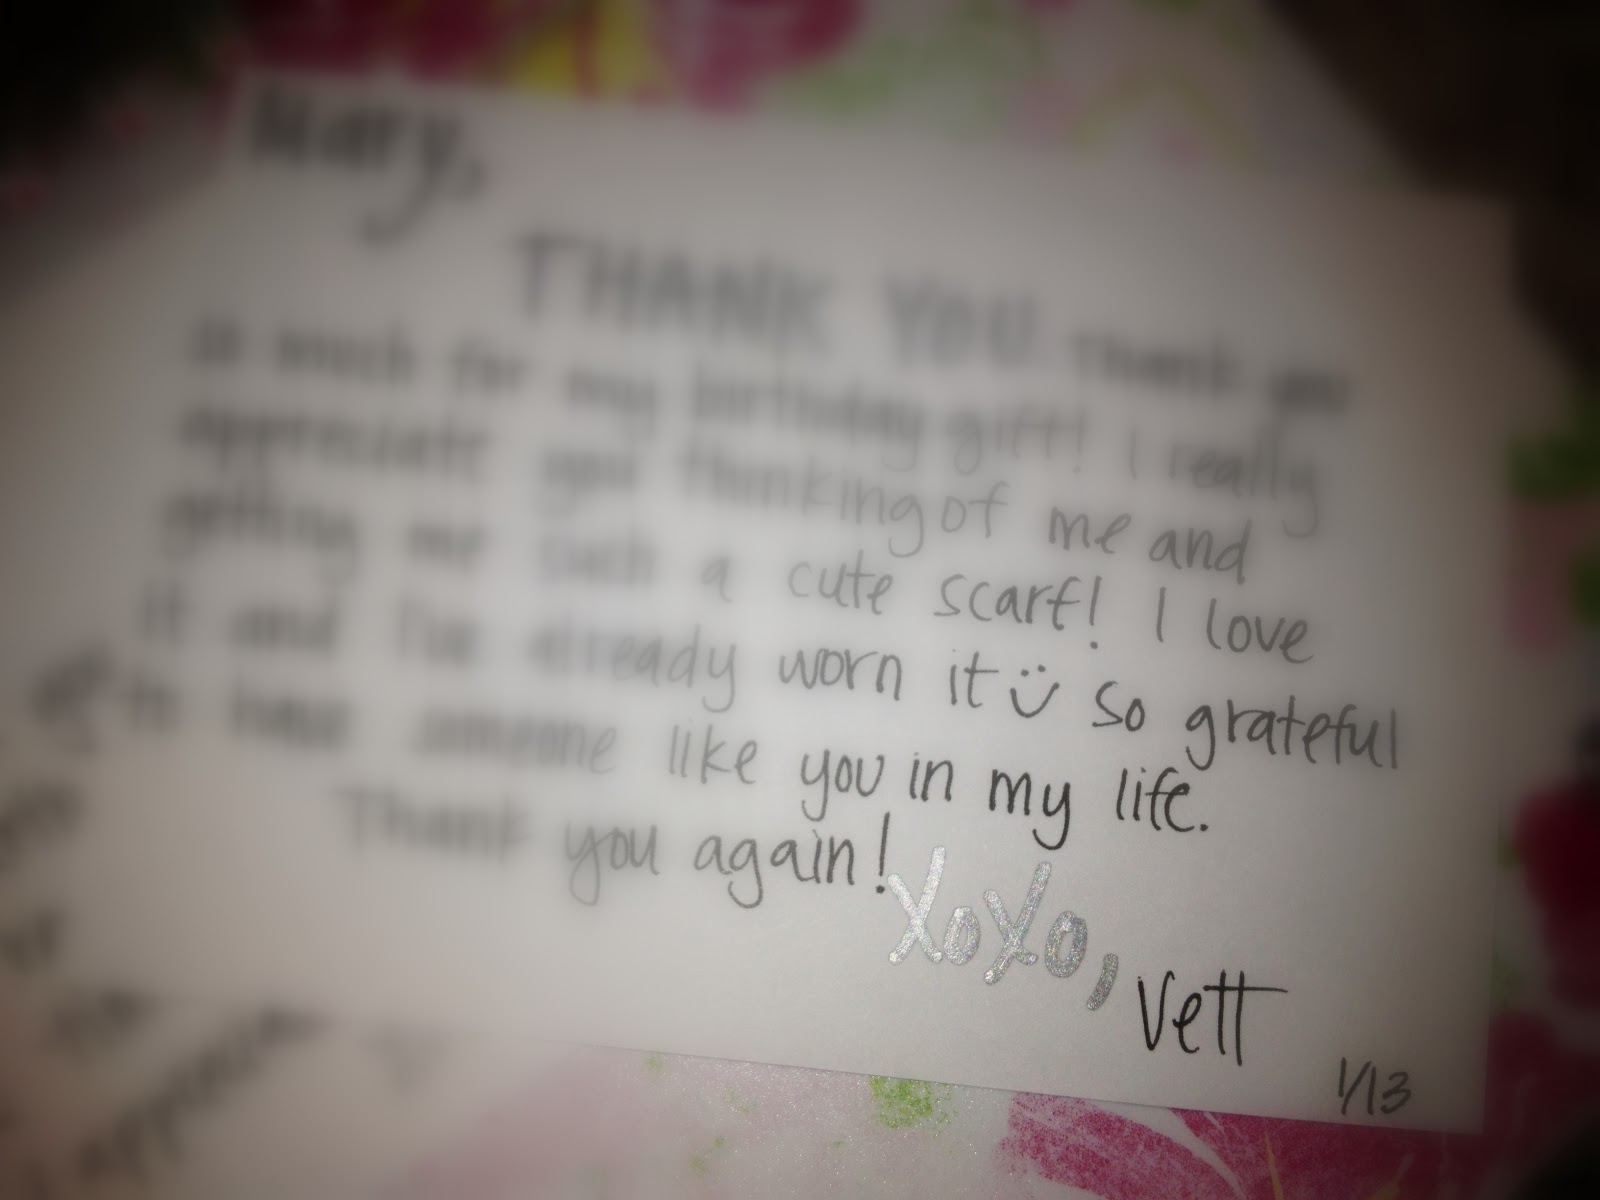 THANK YOU Thank you
so much for my birthday gift! I really
appreciate you thinking of me and
getting me such a cute scarf! I love
it and I've already worn it so grateful
to have someone like you in my life.
Thank you again!
XoXo,
Vett
1/13